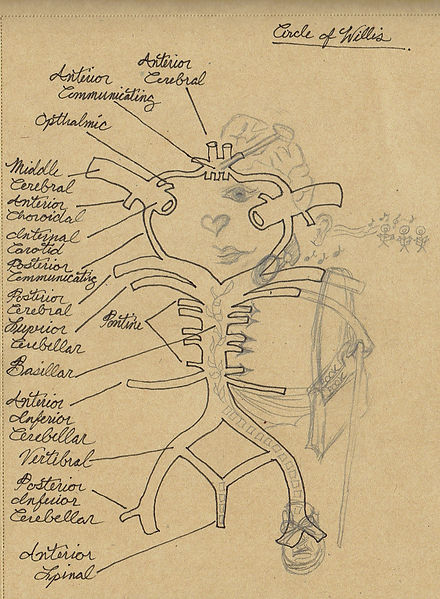 Circle of Willis
Anterior
Cerebral
Anterior
Communicating
Opthalmic
Middle
Cerebral
Anterior
Choroidal
Internal
Carotid
Posterior
Communicating
Posterior
Cerebral
Superior
Cerebellar
Pontine
Basillar
Anterior
Inferior
Cerebellar
Vertibral
Posterior
Inferior
Cerebellar
Anterior
Spinal